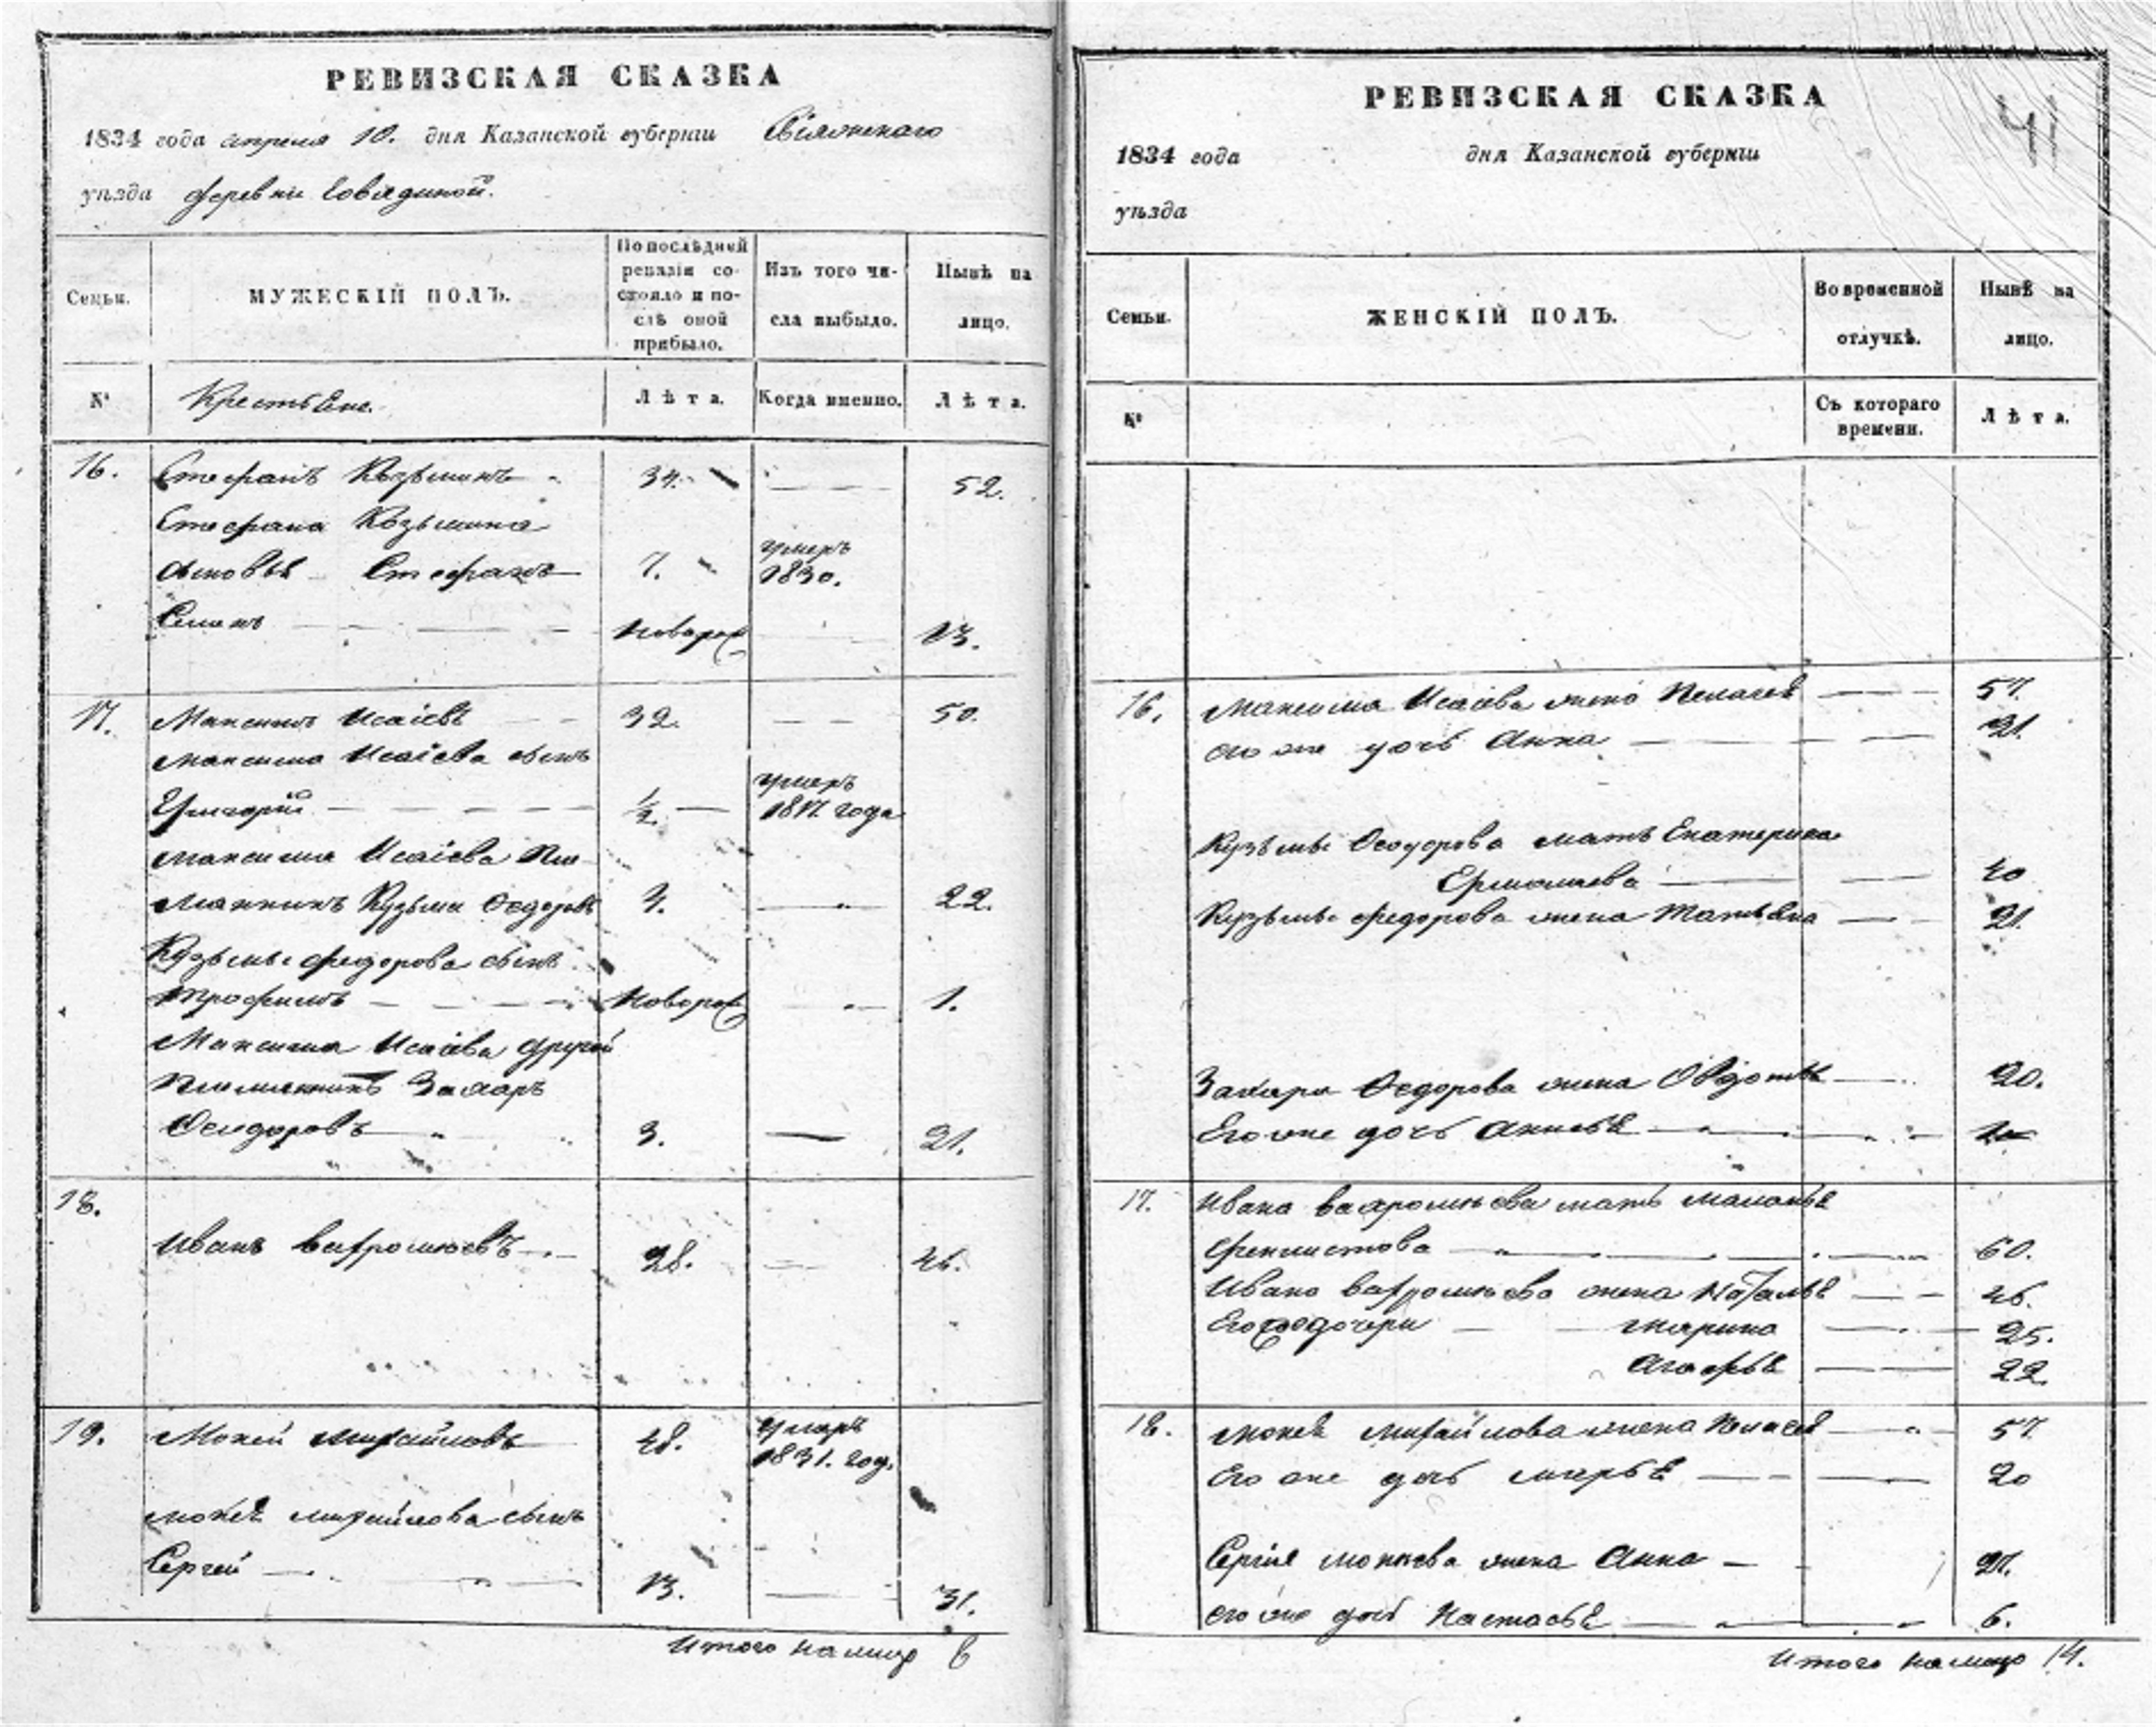 РЕВИЗСКАЯ СКАЗКА
1834 года апреля 10. дня Казанской губернiи Свiяжскаго
уѣзда деревни
Семьи.
МУЖЕСКIЙ ПОЛЪ.
По послѣдней ревизiи состояло и послѣ оной прибыло.
Изъ того числа выбыло.
Нынѣ на лицо.
№
Крестьяне.
Лѣта.
Когда именно.
Лѣта.
16. Стефанъ Козьминъ 34. 52.
Стефана Козьмина
сыновья Стефанъ 7. умеръ 1830.
Семенъ новорож 13.
17. Максимъ Исаiевъ 32. 50.
Максима Исаiева сынъ
Григорiй ½ умеръ 1817 года
Максима Исаiева пле-
мянникъ Кузьма Федоровъ 4. 22.
Кузьмы Федорова сынъ
Трофимъ новорож 1.
Максима Исаiева другой
племянникъ Захаръ
Феодоровъ 3. 21.
18.
Иванъ Вахромѣевъ 28. 46.
19. Мокей Михайловъ 48. умеръ 1831. год.
Мокея Михайлова сынъ
Сергей 13. 31.
Итого налицо 8
РЕВИЗСКАЯ СКАЗКА
41
1834 года дня Казанской губернiи
уѣзда
Семьи.
ЖЕНСКIЙ ПОЛЪ.
Во временной отлучкѣ.
Нынѣ на лицо.
№
Съ котораго времени.
Лѣта.
16. Максима Исаiева жена Пелагея 57.
его же дочь Анна 21.
Кузьмы Феодорова мать Екатерина
Ермолаева 40
Кузьмы Федорова жена Татьяна 21.
Захара Федорова жена Овдотья 20.
Его же дочь Анисья
17. Ивана Вахромѣева мать Маланья
60.
Ивана Вахромѣева жена Наталья 46.
Его дочери Марина 25.
Агафья 22.
18. Мокея Михайлова жена Пелагея 57.
Его же дочь Марья 20
Сергiя Мокѣева жена Анна 27.
его же дочь Настасья 6.
Итого налицо 14.